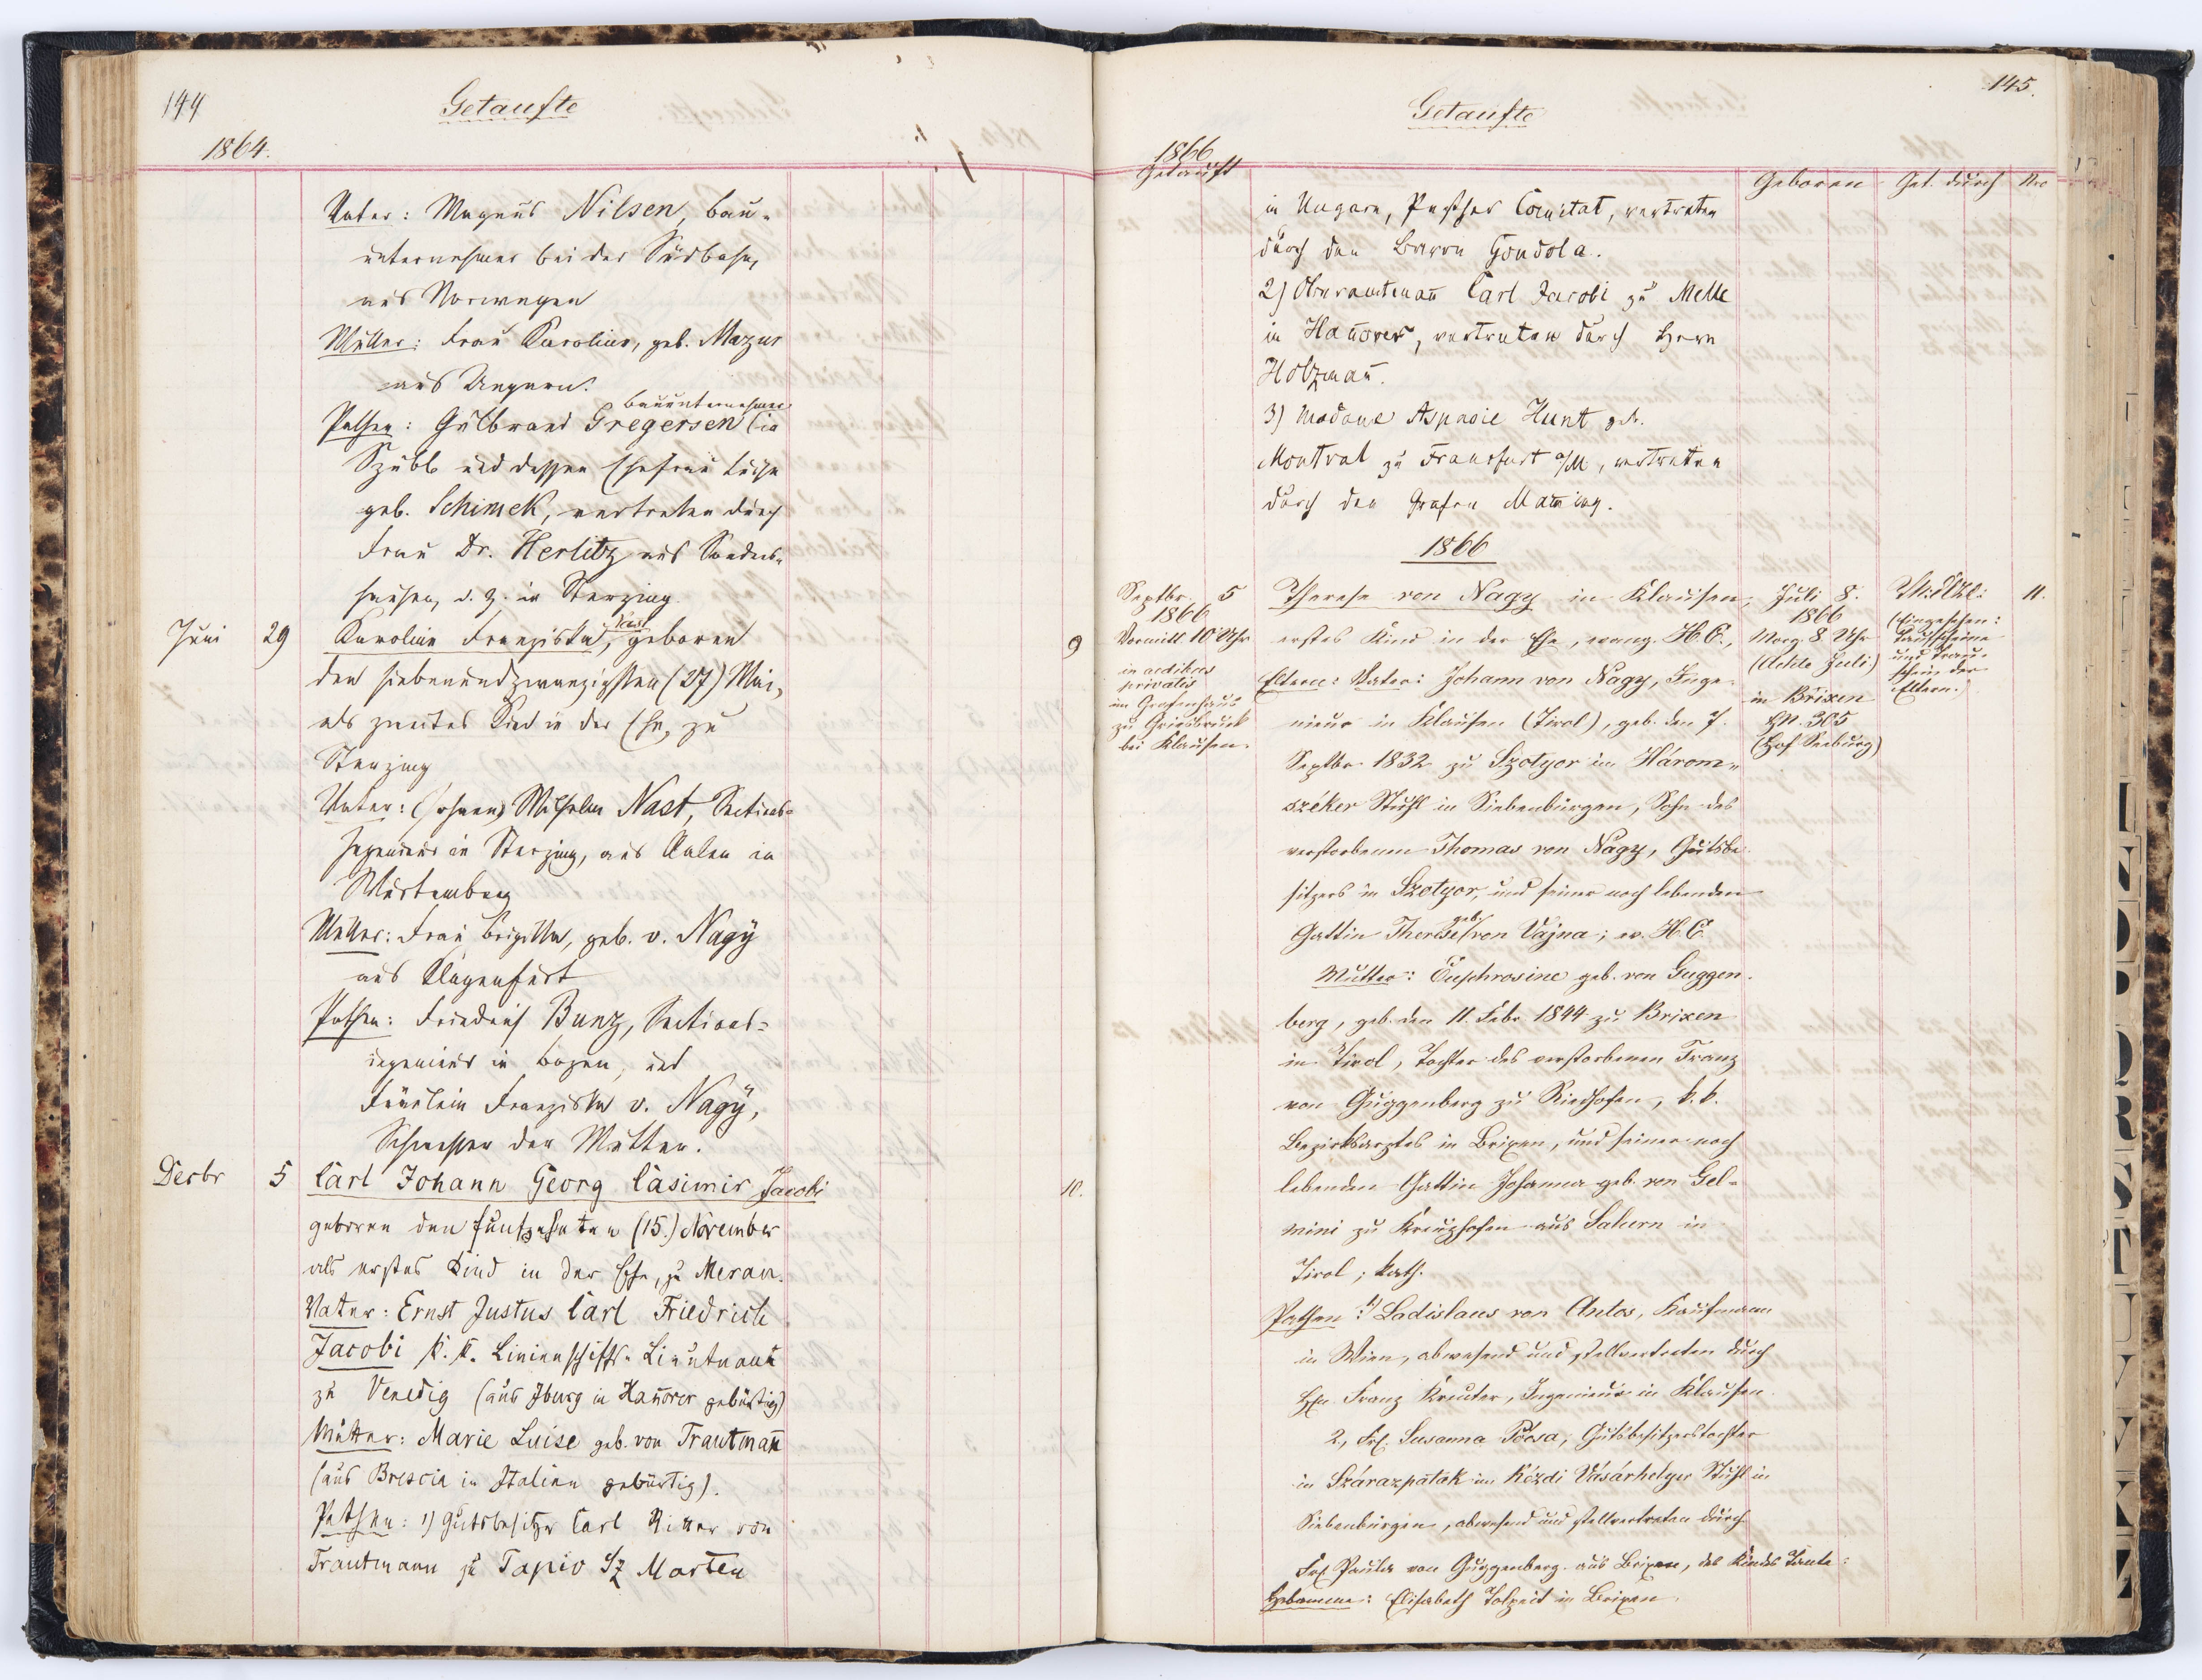 144
Getaufte
1864.
Vater: Magnus Nilsen, Bau-
unternehmer bei der Südbahn,
aus Norwegen
Mutter: Frau Karoline, geb. Mazur
aus Ungarn.
Bauunternehmer
Pathen: Gulbrand Gregersen (in
und dessen Ehefrau Luise
geb. Schimek, vertreten durch
Frau Dr. Herlitz aus Sonders-
hausen, d. Z. in Sterzing.
Juni 29 Karoline Franziska, Nast geboren 9
den siebenundzwanzigsten (27) Mai,
als zweites Kind in der Ehe, zu
Sterzing
Vater: (Johann) Wilhelm Nast, Sections-
Ingenieur in Sterzing, aus Aalen in
Würtemberg
Mutter: Frau Brigitta, geb. v. Nagÿ
aus Klagenfurt
Pathen: Friedrich Bunz, Sections-
ingenieur in Bozen, und
Fräulein Franziska v. Nagÿ,
Schwester der Mutter.
Decbr 5 Carl Johann Georg Casimir Jacobi 10.
geboren den funfzehnten (15.) November
als erstes Kind in der Ehe, zu Meran.
Vater: Ernst Justus Carl Friedrich
Jacobi k. k. Linienschiffs-Lieutnant
zu Venedig (aus Iburg in Hanover gebürtig)
Mutter: Marie Luise geb. von Trautmann
(aus Brescia in Italien gebürtig).
Pathen: 1) Gutsbesitzer Carl Ritter von
Trautmann zu Tapio Sz Marten
145.
Getaufte
1866
Getauft Geboren Get. durch Nro
in Ungarn, Pesther Comitat, vertreten
durch den Baron Gondola.
2) Oberamtman̄ Carl Jacobi zu Melle
in Han̄over, vertreten durch Herrn
Holzman̄.
3) Madame Aspasie Hunt geb.
Montval zu Francfurt a/M, vertreten
durch den Grafen Man̄ing.
1866
Septbr. 5
1866
Vormitt 10 Uhr
in aedibus
privatis
im Grafenhaus
zu Griesbruck
bei Klausen.
Therese von Nagy in Klausen,
erstes Kind in der Ehe, evang. H. C.,
Eltern: Vater: Johann von Nagy, Inge-
nieur in Klausen (Tirol), geb. den 7.
Septbr 1832 zu Szotyor im Három-
széker Stuhl in Siebenbürgen, Sohn des
verstorbenen Thomas von Nagy, Gutsbe-
sitzers in Szotyor, und seiner noch lebenden
Gattin Therese geb. von Vajna; ev. H. C.
Mutter: Euphrosine geb. von Guggen-
berg, geb. den 11. Febr 1844 zu Brixen
in Tirol, Tochter des verstorbenen Franz
von Guggenberg zu Riedhofen, k. k.
Bezirksarztes in Brixen, und seiner noch
lebenden Gattin Johanna geb. von Gel-
mini zu Kreuzhofen aus Salurn in
Tirol; kath.
Pathen: 1) Ladislaus von Antos, Kaufmann
in Wien, abwesend und stellvertreten durch
Hn. Franz Kreuter, Ingenieur in Klausen.
2, Frl. Susanna Póosa, Gutsbesitzerstochter
in Szárazpatak im Kézdi Vásárhelyer Stuhl in
Siebenbürgen, abwesend und stellvertreten durch
Frl Paula von Guggenberg aus Brixen, des Kindes Tante:
Hebamme: Elisabeth in Brixen.
Juli 8.
1866
Morg. 8 Uhr
(Achte Juli)
in Brixen
HN. 305
(Hof Seeburg)
(Eingesehen:
Taufscheine
und Trau-
schein der
Eltern.)
11.